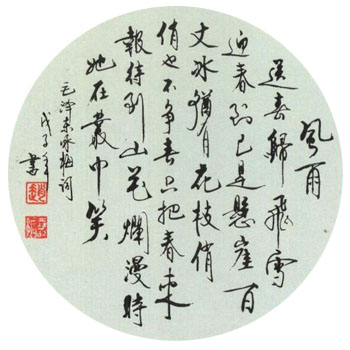 風雨
送春歸飛雪
迎春到已是懸崖百
丈冰猶有花枝俏
俏也不争春只把春來
報待到山花爛漫時
她在叢中笑
毛澤東咏梅詞
戊子年書